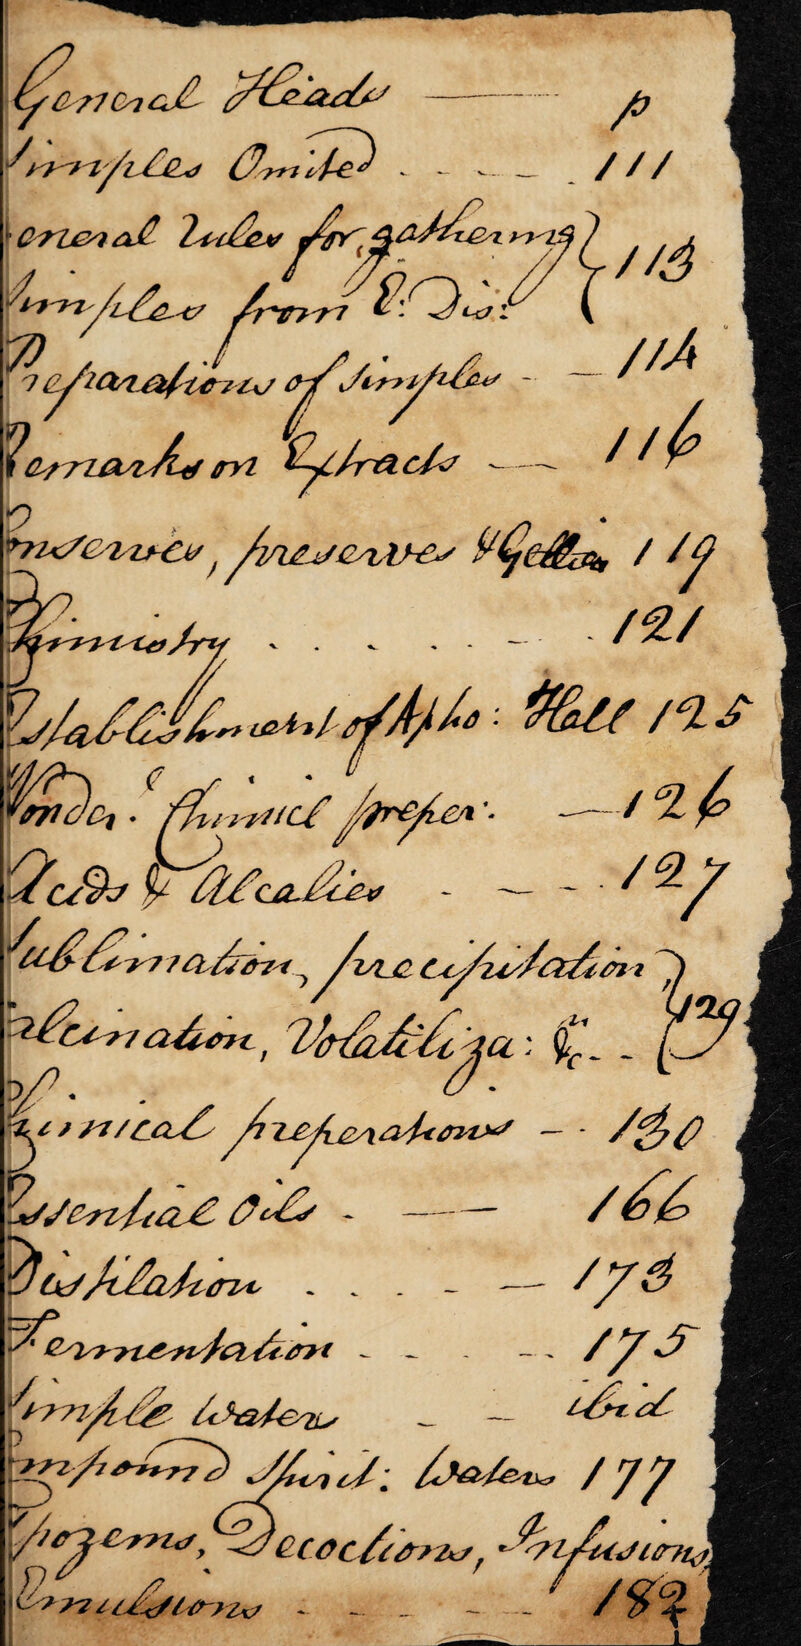 General Heads — p
Simples Omited . - - - . 111
General Rules for gathering } 113
Simples from E: Dis:
Preparations of simples - - 114
Remarks on Extracts — 116
Conserves, preserves & Gellies 119
Chimistry . . . . . - . . 121
Establishment of Apho: Hall 125
Chimicl preper: — 126
Acids & Alcalies - - - . 127
Sublimation, precipitation, } 129
Calcination, Volatiliza: &c - -
Chimical preperations - . 130
Essential Oils . — 166
Distilation . . . - - 173
Fermentation - - . - . 175
Simple Waters - - ibid
Compound Spirit: Waters 177
Apozems, Decoctions, Infusions,
Emulsions - - - - 182